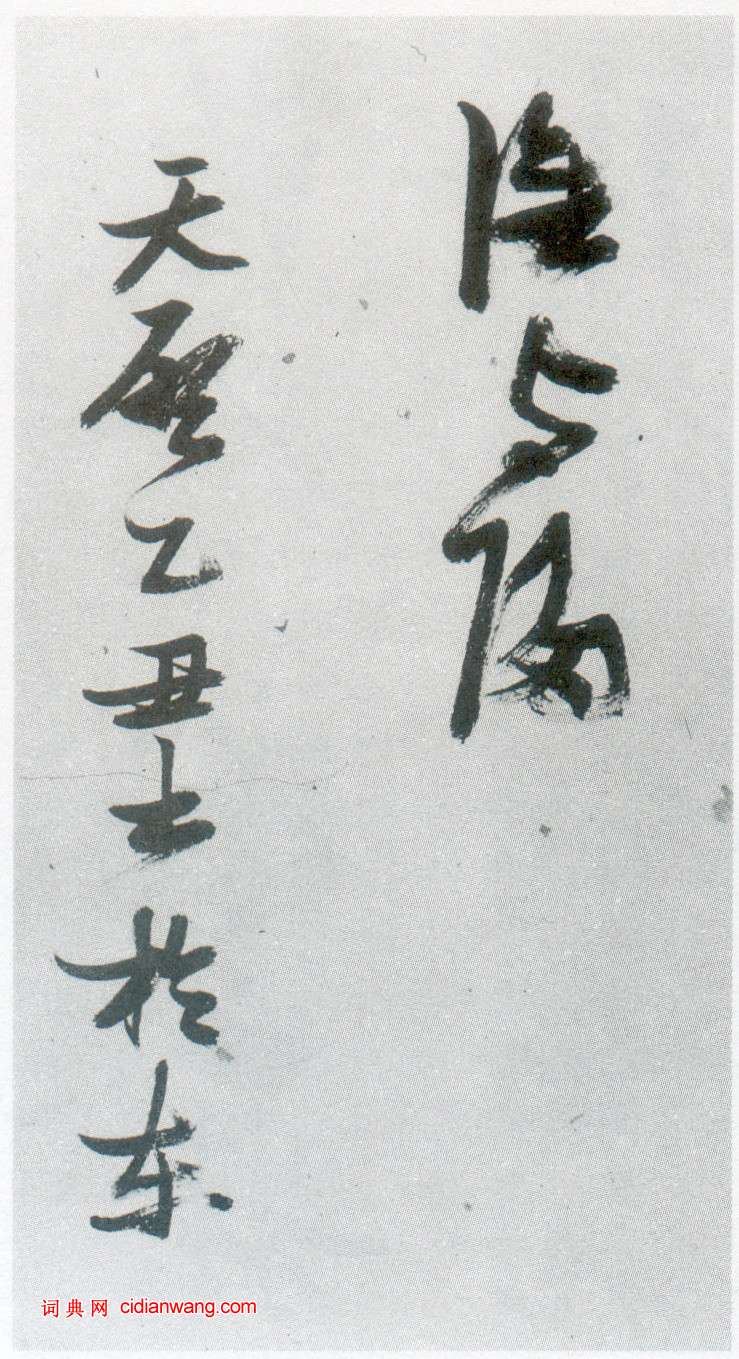 陰与陽
天啓乙丑於東
词典网 cidianwang.com